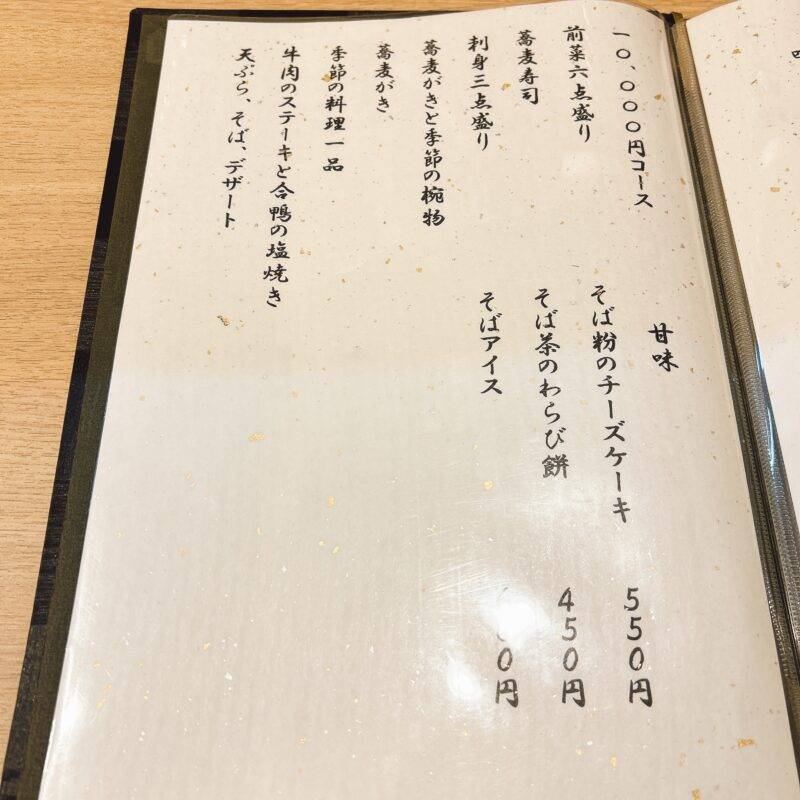 一〇、〇〇〇円コース
前菜六点盛り
蕎麦寿司
刺身三点盛り
蕎麦がきと季節の椀物
蕎麦がき
季節の料理一品
牛肉のステーキと合鴨の塩焼き
天ぷら、そば、デザート
甘味
そば粉のチーズケーキ 550円
そば茶のわらび餅 450円
そばアイス